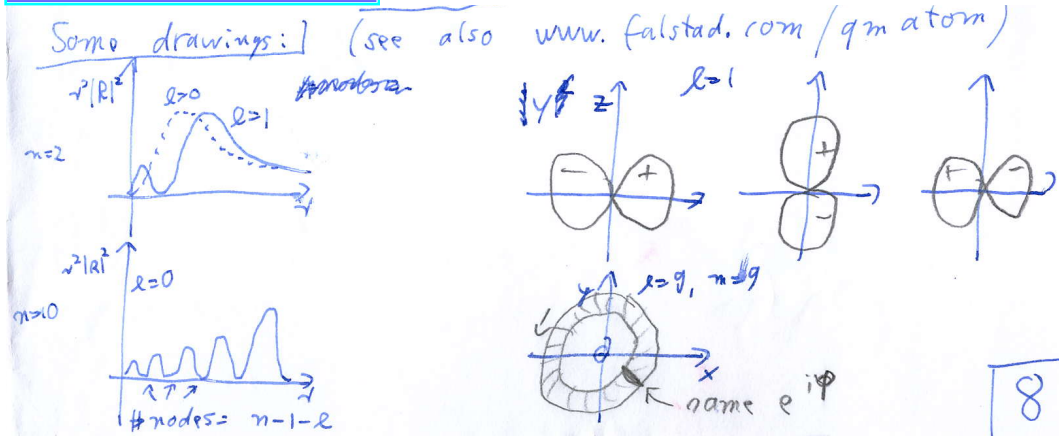 Some drawings: (see also www.falstad.com/qmatom)
r²|R|²
l=0
l=1
n=2
r
|Y| z
l=1
- +
+
-
+ -
r²|R|²
l=0
n=10
r
#nodes= n-1-l
y
l=9, m=9
x
same e^iφ
8